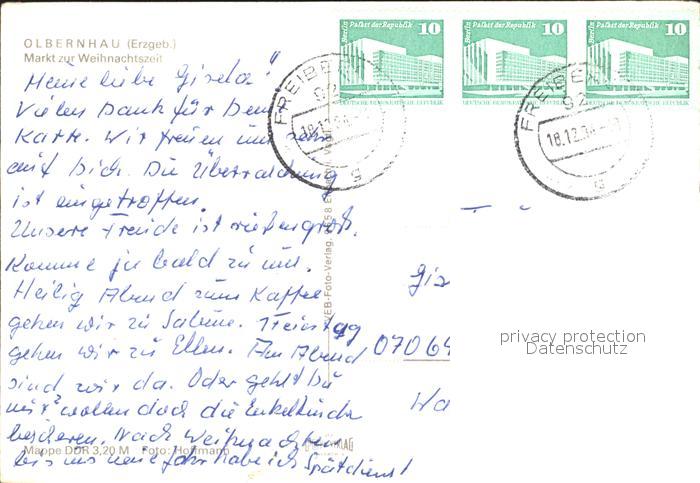 OLBERNHAU (Erzgeb.)
Markt zur Weihnachtszeit
Meine liebe Gisela!
Vielen Dank für Deine
Karte. Wir freuen uns sehr
auf Dich. Die Überraschung
ist eingetroffen.
Unsere Freude ist riesengroß.
Komme ja bald zu uns.
Heilig Abend zum Kaffee
gehen wir zu Sabine. 1 Feiertag
gehen wir zu Ellen. Am Abend
sind wir da. Oder gehst Du
mit? wollen doch die Enkelkinder
bescheren. Nach Weihnachten
bis ins neue Jahr habe ich Spätdienst
Mappe DDR 3,20 M Foto: Hoffmann
VEB-Foto-Verlag
Berlin, Palast der Republik 10
DEUTSCHE DEMOKRATISCHE REPUBLIK
Berlin, Palast der Republik 10
DEUTSCHE DEMOKRATISCHE REPUBLIK
Berlin, Palast der Republik 10
DEUTSCHE DEMOKRATISCHE REPUBLIK
FREIBE
92
18.12.
g
FREIBE
92
18.12.
g
Gis
070 64
Wa
privacy protection
Datenschutz